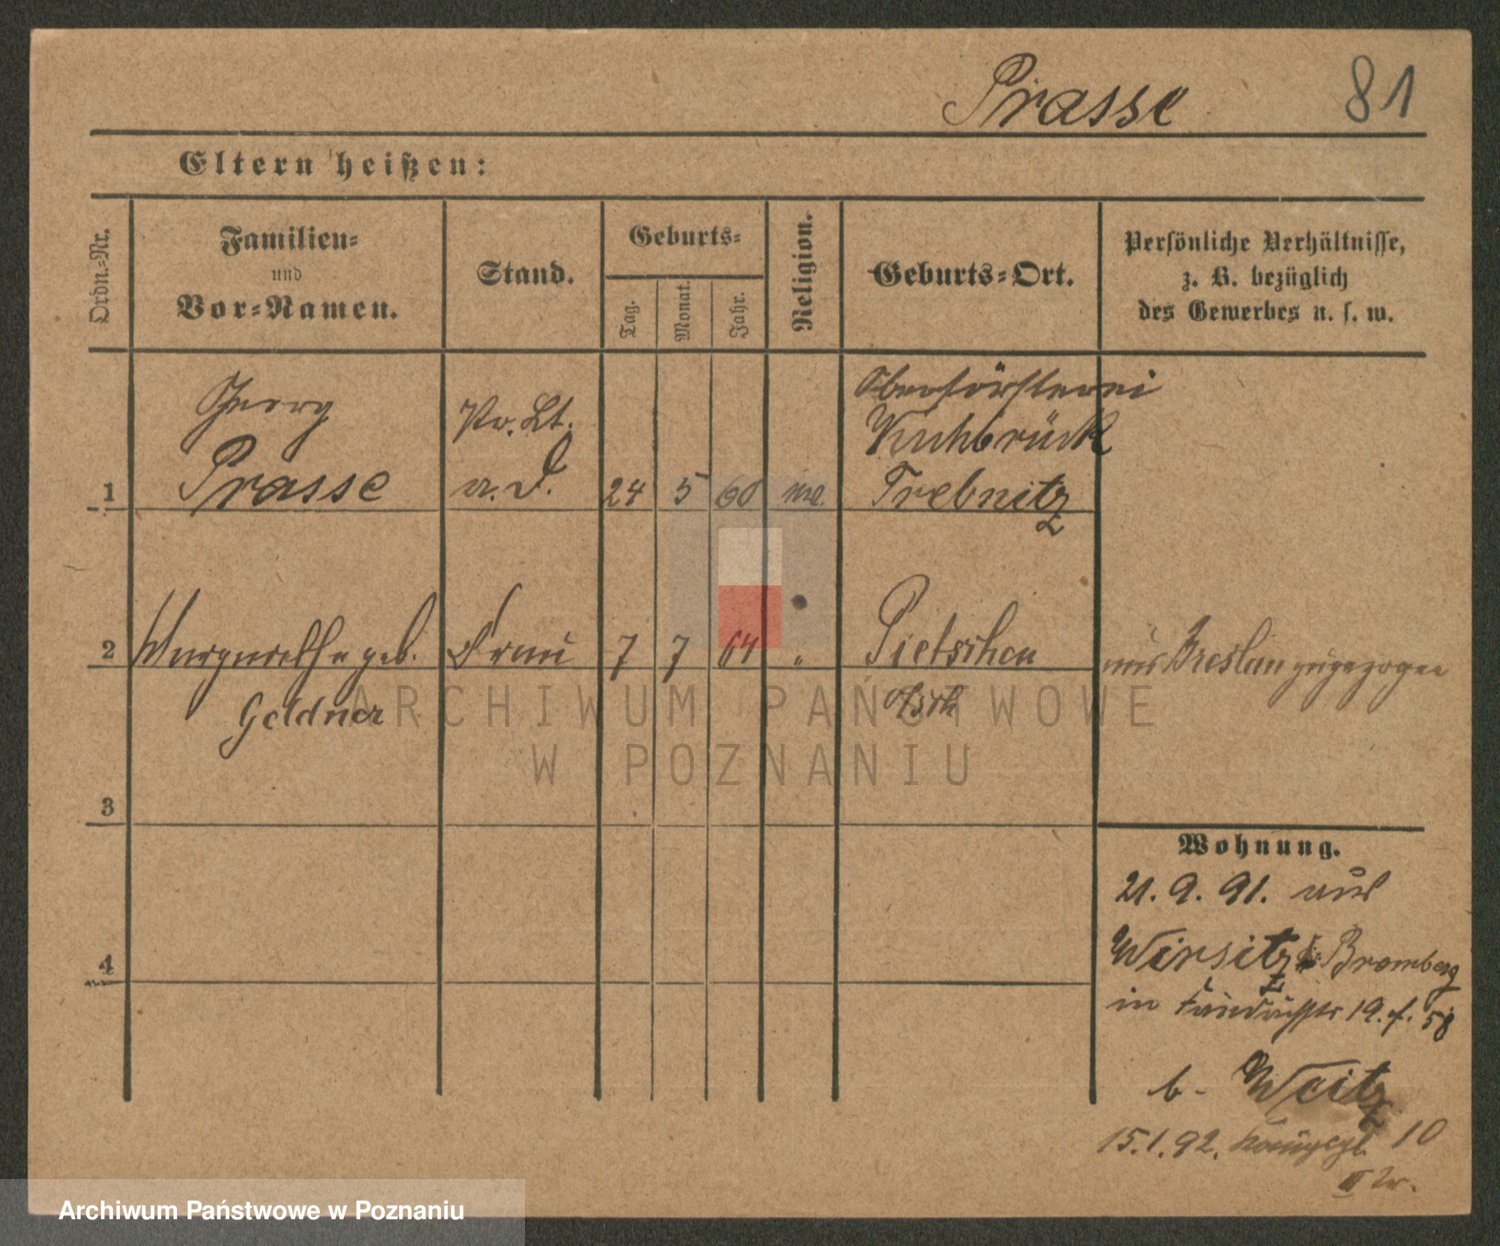 Prasse
81
Eltern heißen:
Ordn.-Nr.
Familien-
und
Vor-Namen.
Stand.
Geburts-
Tag.
Monat.
Jahr.
Religion.
Geburts-Ort.
Persönliche Verhältnisse,
z. B. bezüglich
des Gewerbes u. s. w.
Georg
Prasse
Pr. Lt.
a. D.
Oberförsterei
Kuhbrück
Trebnitz
1
24
5
60
2
Margarethe geb.
Geldner
Frau
7
7
64
"
Pietschen
aus Breslau zugezogen
3
4
Wohnung.
21. 9. 91. aus
Wirsitz Bromberg
in 19. f. 58
b- Weitz
15.1.92. Königspl. 10
II Tr.
ARCHIWUM PAŃSTWOWE
W POZNANIU
Archiwum Państwowe w Poznaniu